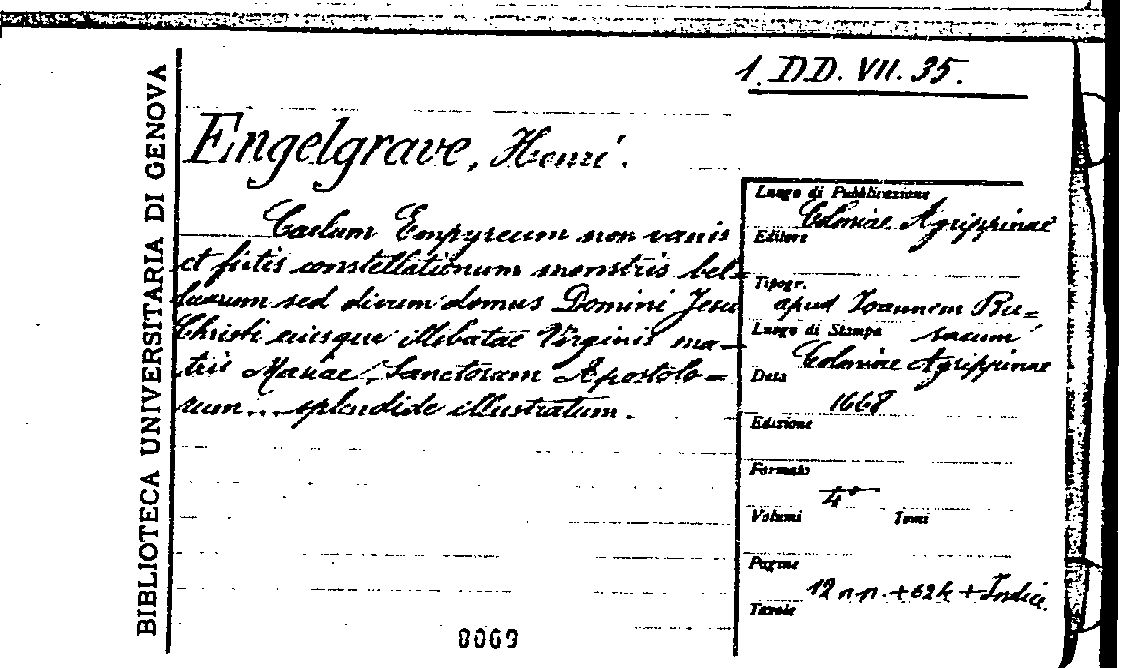 BIBLIOTECA UNIVERSITARIA DI GENOVA
1. D.D. VII. 35.
Engelgrave, Henri.
Caelum Empyreum non vanis
et fictis constellationum monstris bel=
luarum sed divum domus Domini Jesu
Christi eiusque illibatae Virginis ma-
tris Mariae, Sanctorum Apostolo=
rum... splendide illustratum.
Luogo di Pubblicazione
Coloniae Agrippinae
Editore
Tipogr.
apud Ioannem Bu=
Luogo di Stampa saeum
Coloniae Agrippinae
Data
1668
Edizione
Formato
4°
Volumi Tomi
Pagine
12 n.n. + 624 + Indici
Tavole
8069